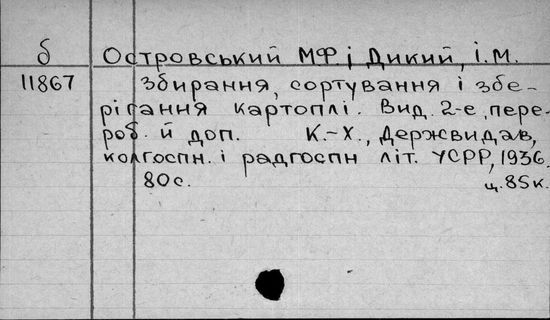 б Островський М.Ф. і Дикий, І.М.
11867 Збирання, сортування і збе-
рігання картоплі. Вид. 2-е, пере-
роб. й доп. К.-Х., Держвидав,
колгоспн. і радгоспн літ. УСРР, 1936.
80с. ц. 85к.